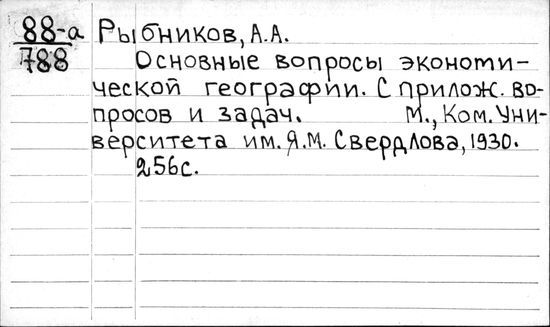 88-а Рыбников, А.А.
788 Основные вопросы экономи-
ческой географии. С прилож. во-
просов и задач. М., Ком. Уни-
верситета им. Я.М. Свердлова, 1930.
256с.